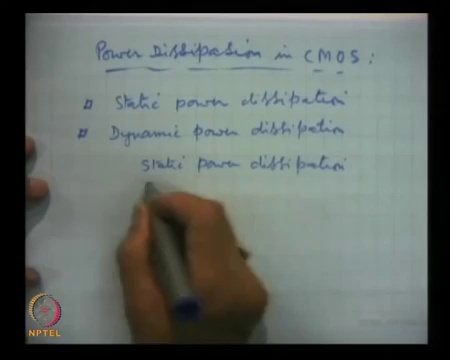 Power Dissipation in CMOS:
Static power dissipation
Dynamic power dissipation
Static power dissipation
NPTEL